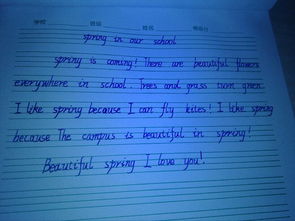 学校 班级 姓名
spring in our school
spring is coming! There are beautiful flowers
everywhere in school. Trees and grass turn green.
I like spring because I can fly kites! I like spring
because The campus is beautiful in spring!
Beautiful spring I love you!